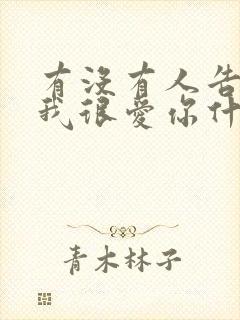 有没有人告
我很爱你什
青木林子